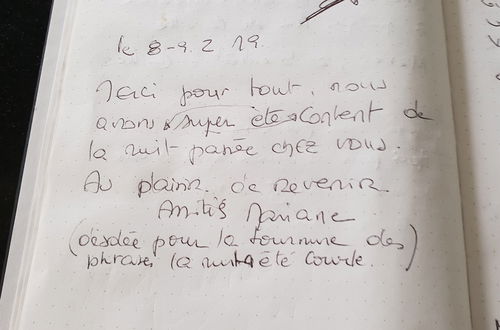 le 8-9. 2 19.
Merci pour tout. nous
avons super été content de
la nuit passée chez vous.
Au plaisir de revenir.
Amitiés Mariane
(désolée pour la tournure des
phrases la nuit a été courte.)